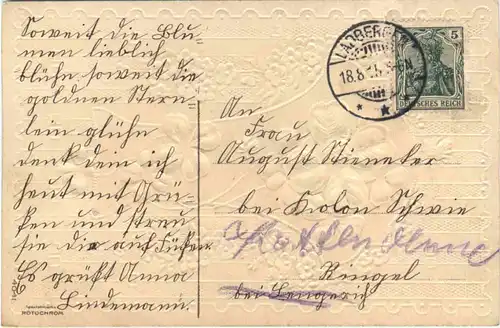 Soweit die Blu
men lieblich
blühn soweit die
goldnen Stern
lein glühn
denk dem ich
heut mit Grü
ßen und streu
sie dir auf Füßen
Es grüßt Anna
Lindemann.
ROTOCHROM
LADBERGEN
18.8.15. 5-6N
5
DEUTSCHES REICH
An
Frau
August Stieneker
bei Kolon Schwie
Ringel
bei Lengerich